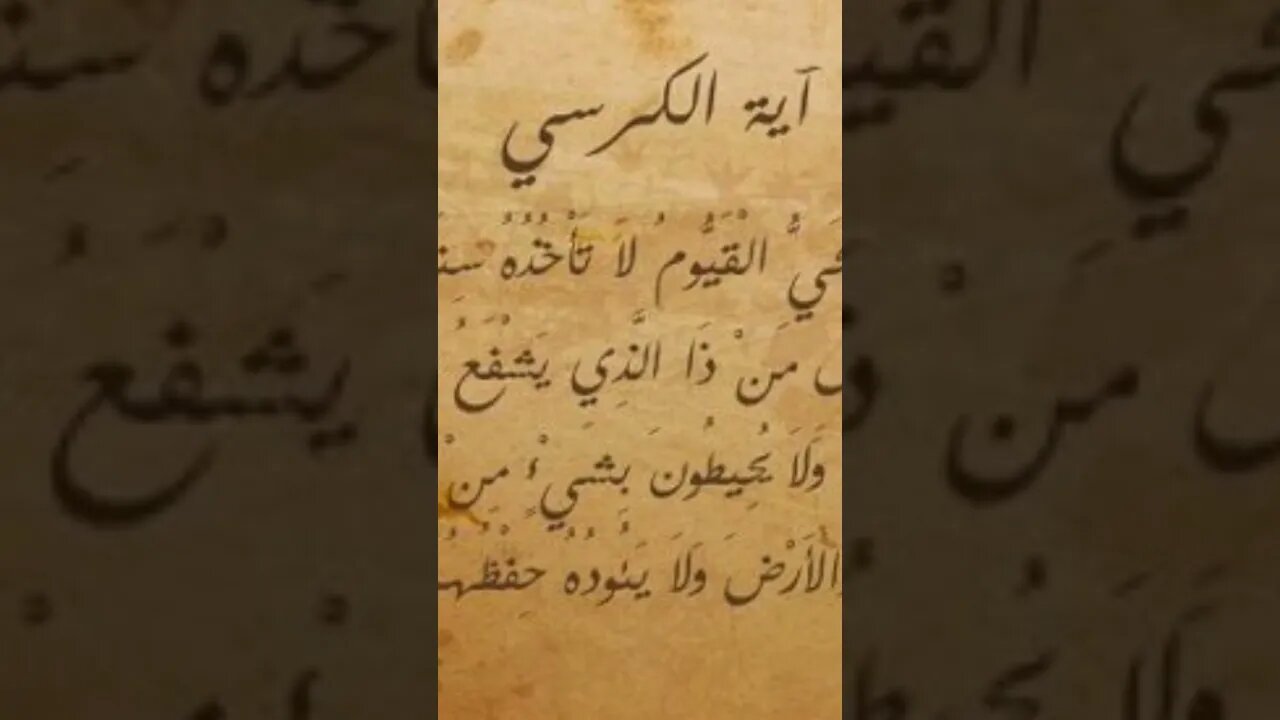 آية الكرسي
الْقَيُّومُ لَا تَأْخُذُهُ
مَنْ ذَا الَّذِي يَشْفَعُ
وَلَا يُحِيطُونَ بِشَيْءٍ مِنْ
الْأَرْضَ وَلَا يَئُودُهُ